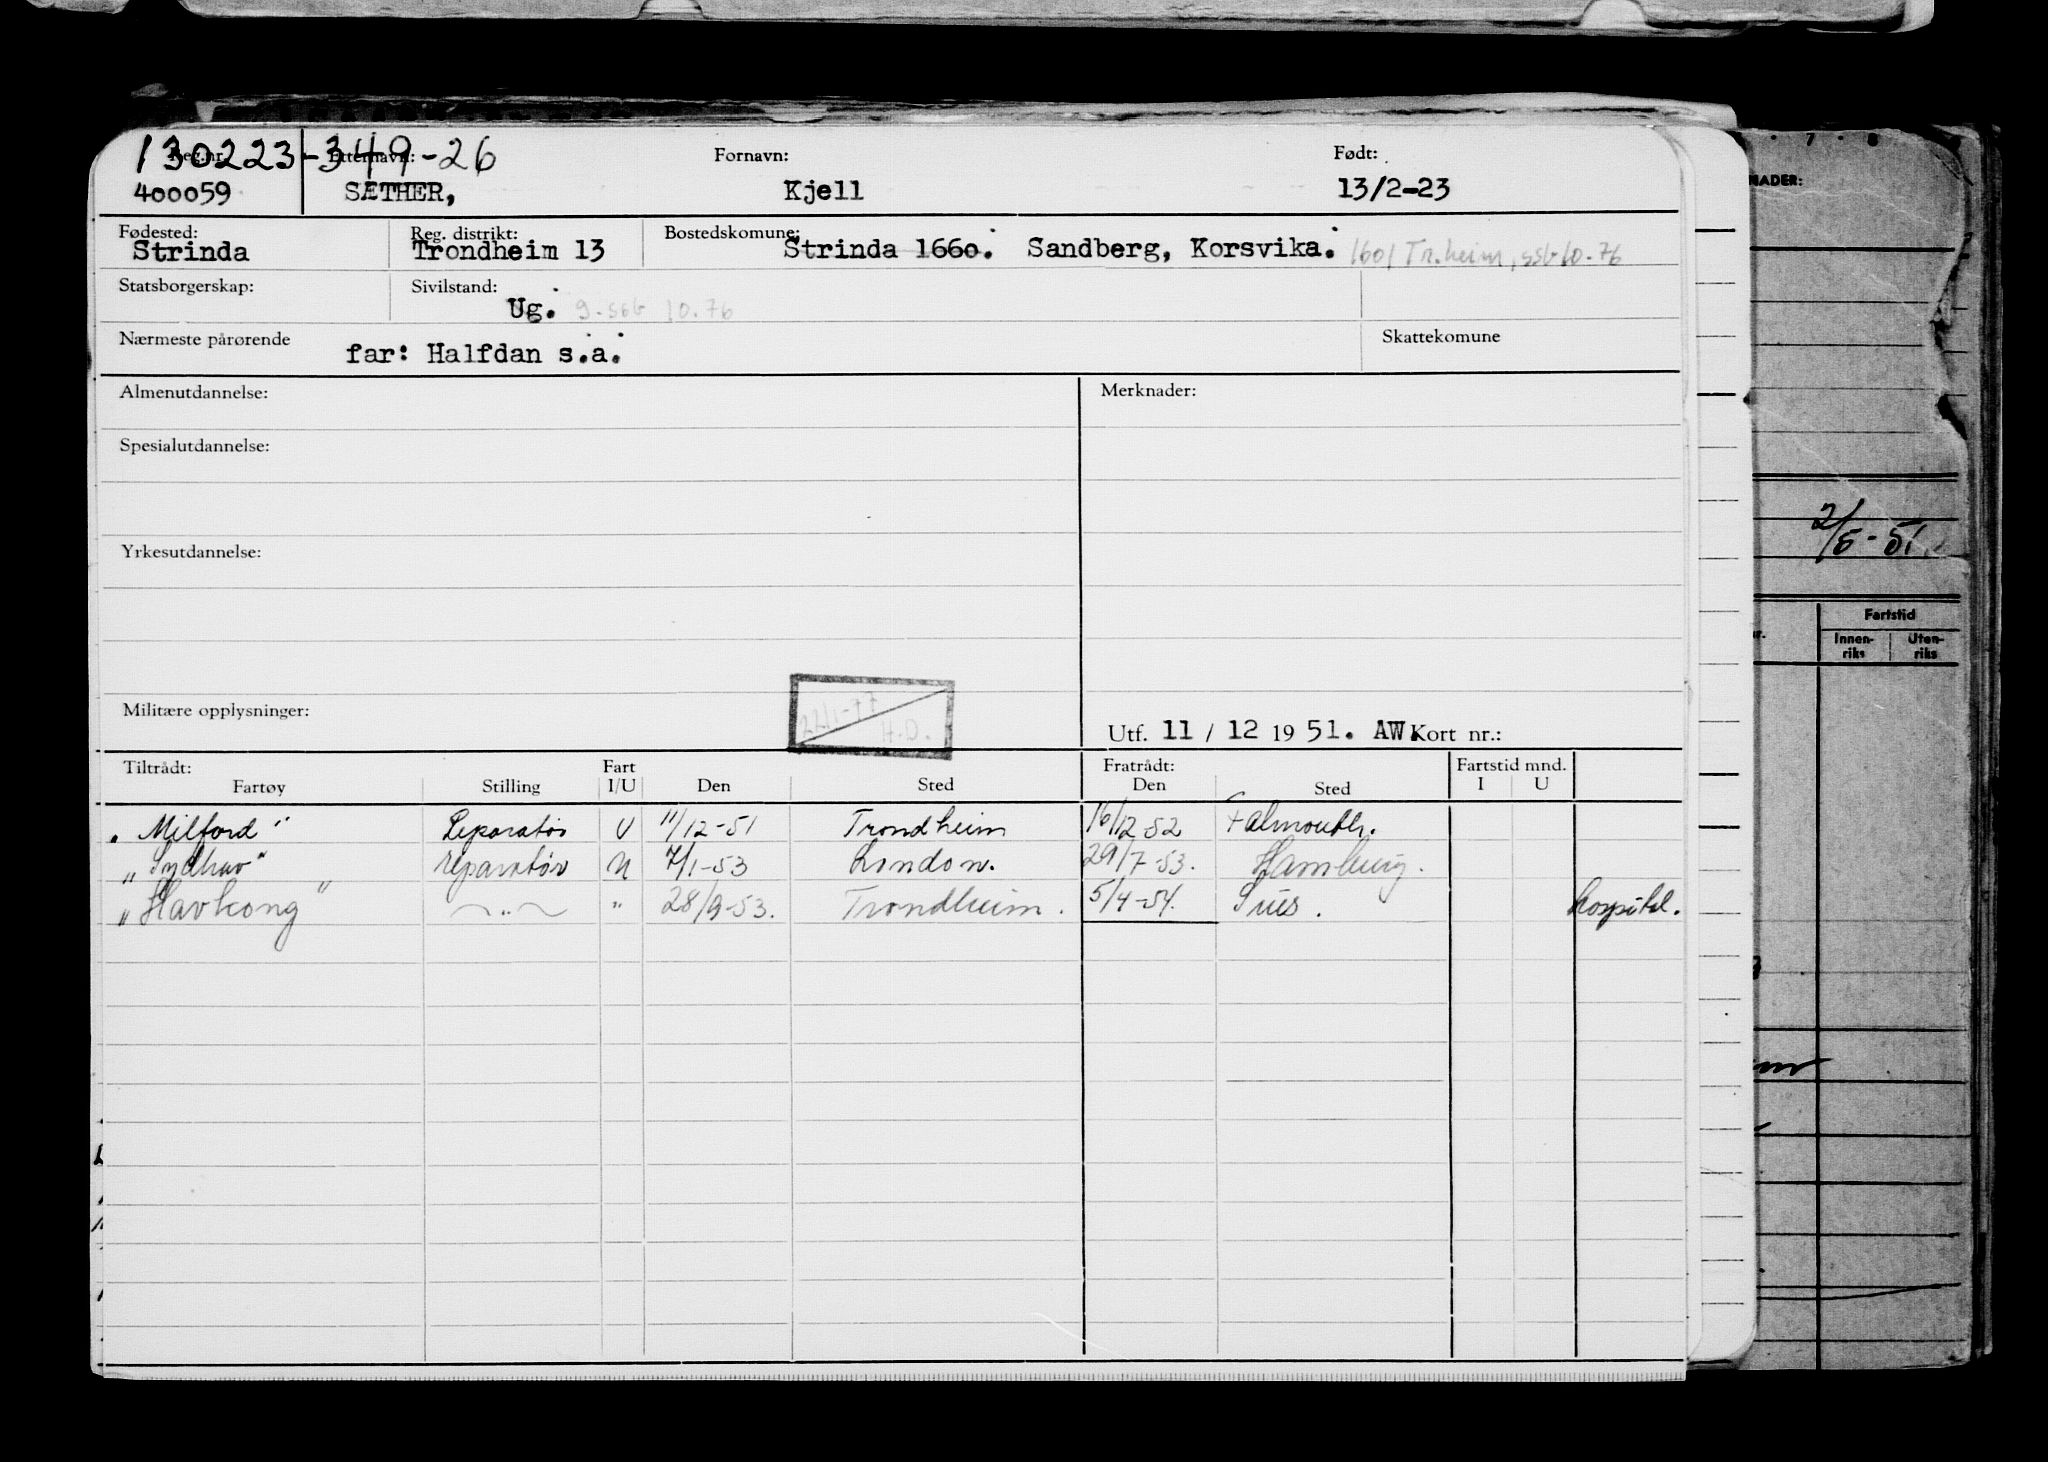 130223-349-26
Reg.nr. Etternavn: Fornavn: Født:
400059 SÆTHER, Kjell 13/2-23
Fødested: Reg. distrikt: Bostedskomune:
Strinda Trondheim 13 Strinda 1660. Sandberg, Korsvika. 1601 Tr.heim, ssb 10.76
Statsborgerskap: Sivilstand:
Ug. g. ssb 10.76
Nærmeste pårørende Skattekomune
far: Halfdan s.a.
Almenutdannelse: Merknader:
Spesialutdannelse:
Yrkesutdannelse:
Militære opplysninger: 22/1-77 H.D.
Utf. 11 / 12 19 51. AW. Kort nr.:
Tiltrådt: Fart Fratrådt: Fartstid mnd.
Fartøy Stilling I/U Den Sted Den Sted I U
"Milford" Reparatør U 11/12-51 Trondheim 16/12-52 Falmouth.
"Sydhav" reparatør U 7/1-53 London. 29/7-53. Hamburg.
"Havkong" — " — " 28/9-53. Trondheim. 5/4-54. Sues. hospital.
7 . 8
NADER:
2/5-51
Fartstid
nr. Innen-riks Uten-riks